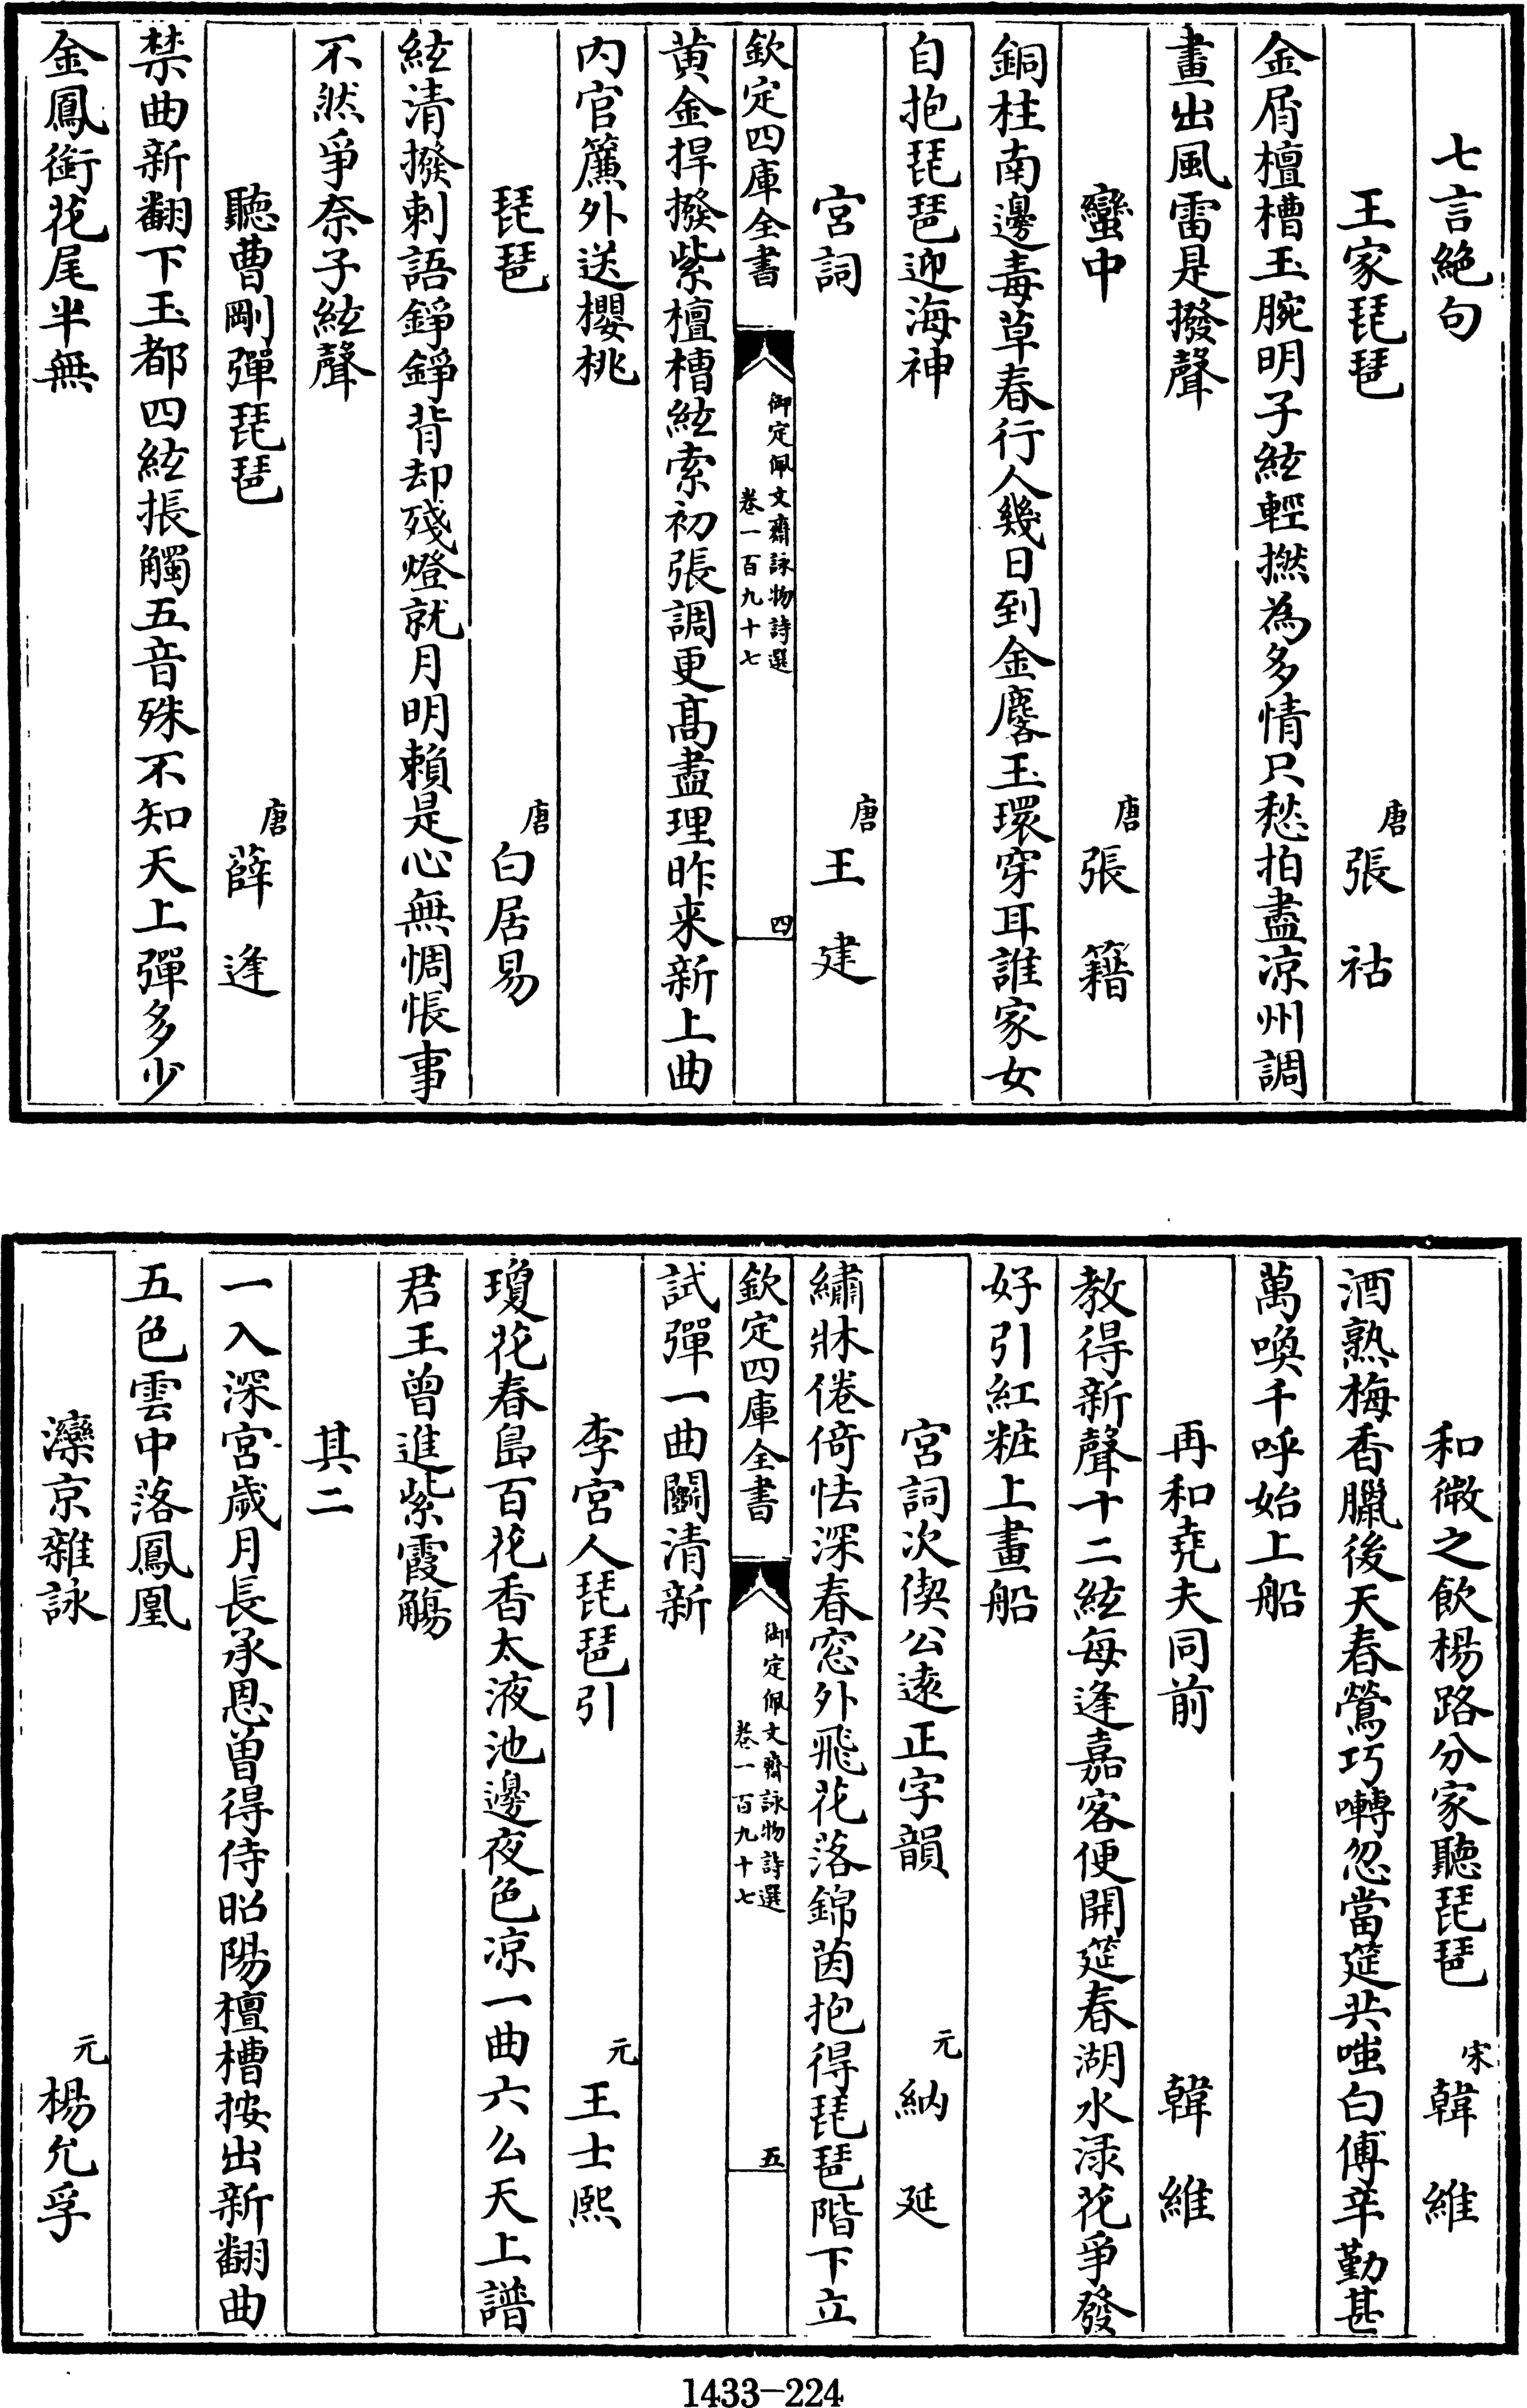 七言絶句
王家琵琶 唐 張祜
金屑檀槽玉腕明子絃輕撚為多情只愁拍盡凉州調
畫出風雷是撥聲
蠻中 唐 張籍
銅柱南邊毒草春行人幾日到金麐玉環穿耳誰家女
自抱琵琶迎海神
宮詞 唐 王建
欽定四庫全書 御定佩文齋詠物詩選 卷一百九十七 四
黄金捍撥紫檀槽絃索初張調更髙盡理昨来新上曲
内官簾外送櫻桃
琵琶 唐 白居易
絃清撥刺語錚錚背却殘燈就月明頼是心無惆悵事
不然爭奈子絃聲
聽曹剛彈琵琶 唐 薛逢
禁曲新翻下玉都四絃掁觸五音殊不知天上彈多少
金鳳銜花尾半無
和微之飲楊路分家聽琵琶 宋 韓維
酒熟梅香臘後天春鶯巧囀忽當筵共嗤白傅辛勤甚
萬喚千呼始上船
再和堯夫同前 韓維
教得新聲十二絃每逢嘉客便開筵春湖水渌花爭發
好引紅粧上畫船
宮詞次偰公逺正字韻 元 納延
繡牀倦倚怯深春窓外飛花落錦茵抱得琵琶階下立
欽定四庫全書 御定佩文齋詠物詩選 卷一百九十七 五
試彈一曲鬭清新
李宮人琵琶引 元 王士熙
瓊花春島百花香太液池邊夜色凉一曲六么天上譜
君王曾進紫霞觴
其二
一入深宮歲月長承恩曽得侍昭陽檀槽按出新翻曲
五色雲中落鳳凰
灤京雜詠 元 楊允孚
1433-224